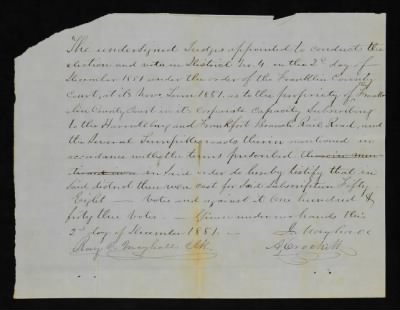 The undersigned Judges appointed to conduct the
election and vote in District No. 4 on the 2d day of
December 1881 under the order of the Franklin County
Court, at its Nov. Term 1881, as to the propriety of Frank
lin County Court in its Corporate Capacity Subscribing
to the Harrodsburg and Frankfort Branch Rail Road, and
the Several Turnpike roads therein mentioned in
accordance with the terms prescribed therein men
in said order do hereby testify that in
said district there were cast for said Subscription Fifty
Eight — Votes and against it One hundred &
forty three Votes — Given under our hands this
2d day of December 1881. —
Clk.